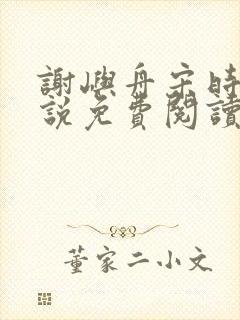 謝嶼舟宋時
說免費閱讀
董家二小文